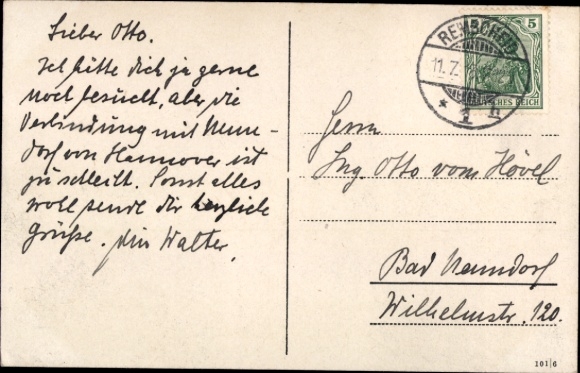 Lieber Otto.
Ich hätte dich ja gerne
noch besucht, aber die
Verbindung mit Nenn-
dorf von Hannover ist
zu schlecht. Sonst alles
wohl sende dir herzliche
Grüße. dein Walter.
REMSCHEID
11.7.
* 1 h
5
DEUTSCHES REICH
Herrn
Ing. Otto vom Hövel
Bad Nenndorf
Wilhelmstr. 120.
101/6